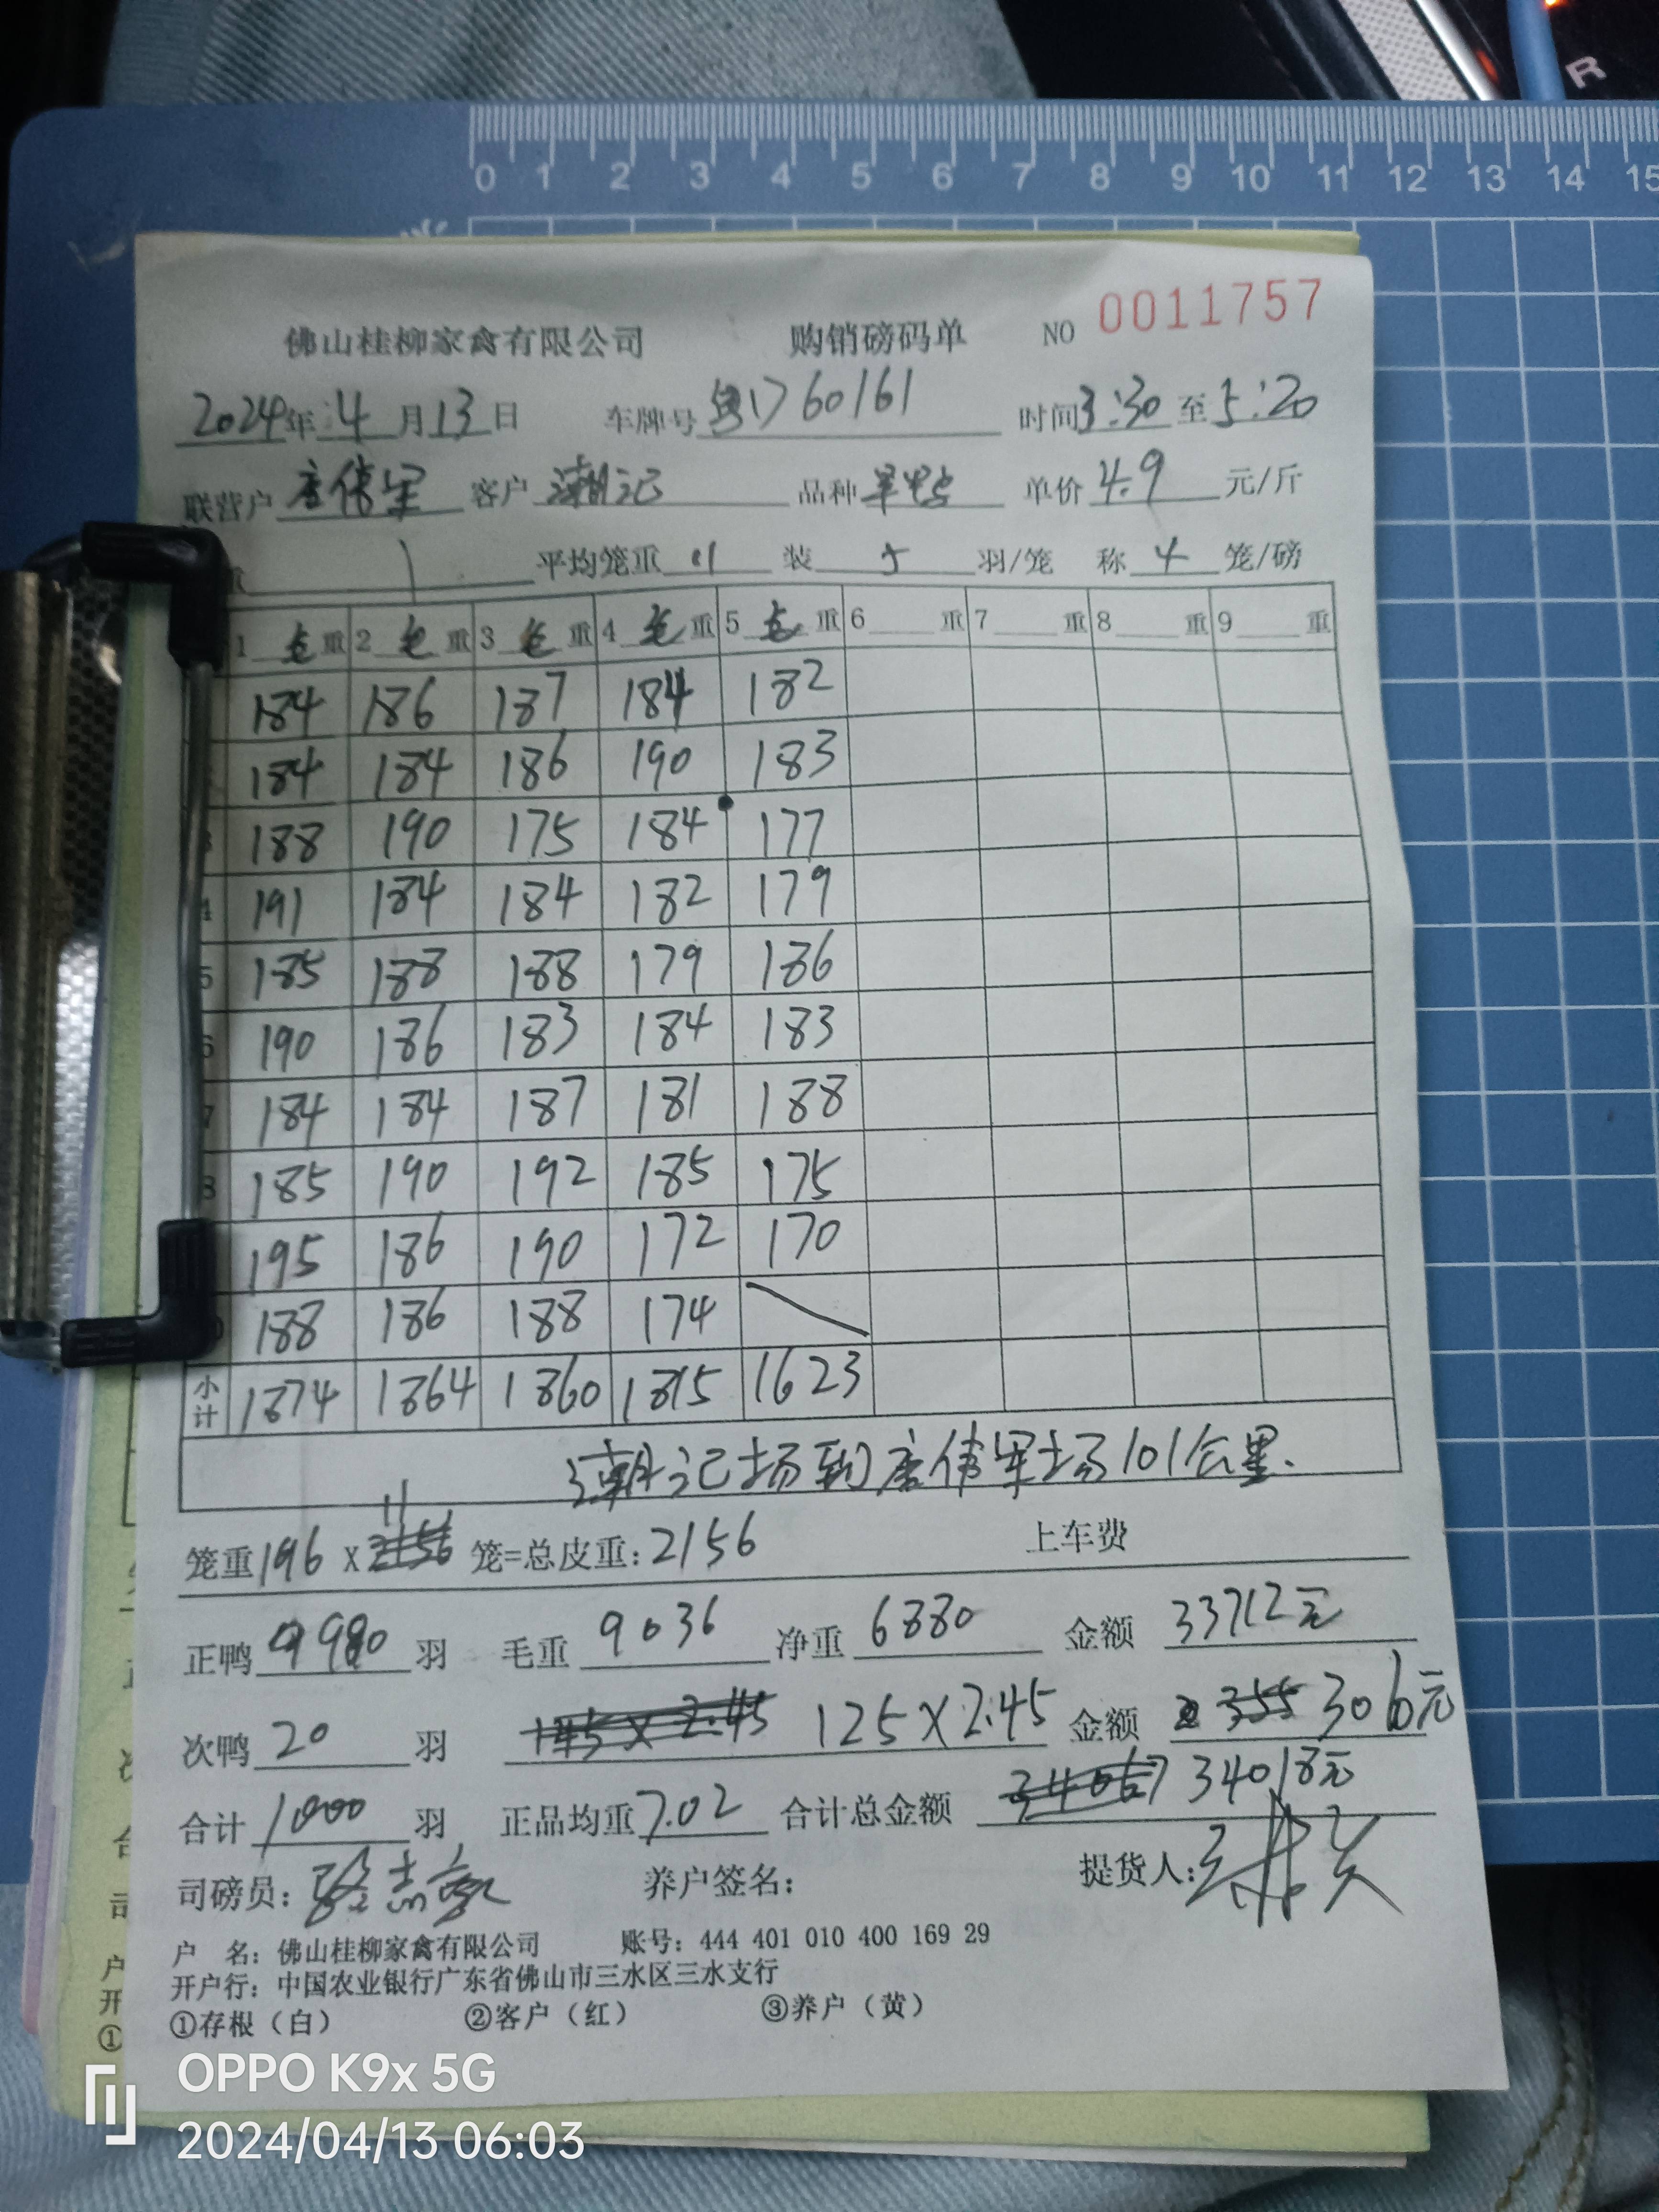 R
0 1 2 3 4 5 6 7 8 9 10 11 12 13 14 15
佛山桂柳家禽有限公司 购销磅码单 NO 0011757
2024年 4月13日 车牌号 粤D60161 时间3:30至5:20
联营户 唐伟军 客户 潮记 品种 旱鸭 单价 4.9 元/斤
平均笼重 11 装 5 羽/笼 称 4 笼/磅
1 毛重 2 毛重 3 毛重 4 毛重 5 毛重 6 重 7 重 8 重 9 重
184 186 187 184 182
184 184 186 190 183
3 188 190 175 184 177
4 191 184 184 182 179
5 185 188 188 179 186
6 190 186 183 184 183
7 184 184 187 181 188
8 185 190 192 185 175
195 186 190 172 170
0 188 186 188 174
小计 1874 1864 1860 1815 1623
潮记场到唐伟军场101公里.
笼重196 X 11 笼=总皮重:2156 上车费
正鸭 980 羽 毛重 9036 净重 6880 金额 33712元
次鸭 20 羽 145 X 2.45 125 X 2.45 金额 355 306元
合计 1000 羽 正品均重 7.02 合计总金额 34067 34018元
司磅员: 养户签名: 提货人:
户 名: 佛山桂柳家禽有限公司 账号: 444 401 010 400 169 29
开户行: 中国农业银行广东省佛山市三水区三水支行
①存根（白） ②客户（红） ③养户（黄）
OPPO K9x 5G
2024/04/13 06:03